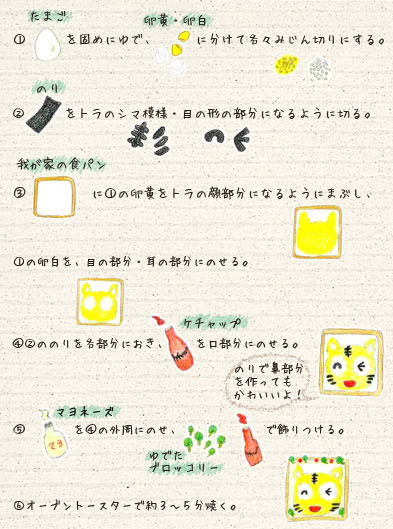 たまご
卵黄・卵白
① を固めにゆで、 に分けて各々みじん切りにする。
のり
② をトラのシマ模様・目の形の部分になるように切る。
我が家の食パン
③ に①の卵黄をトラの顔部分になるようにまぶし、
①の卵白を、目の部分・耳の部分にのせる。
ケチャップ
④②ののりを各部分におき、 を口部分にのせる。
のりで鼻部分
を作っても
かわいいよ!
マヨネーズ
⑤ を④の外周にのせ、 で飾りつける。
マヨ
ゆでた
ブロッコリー
⑥オーブントースターで約3~5分焼く。